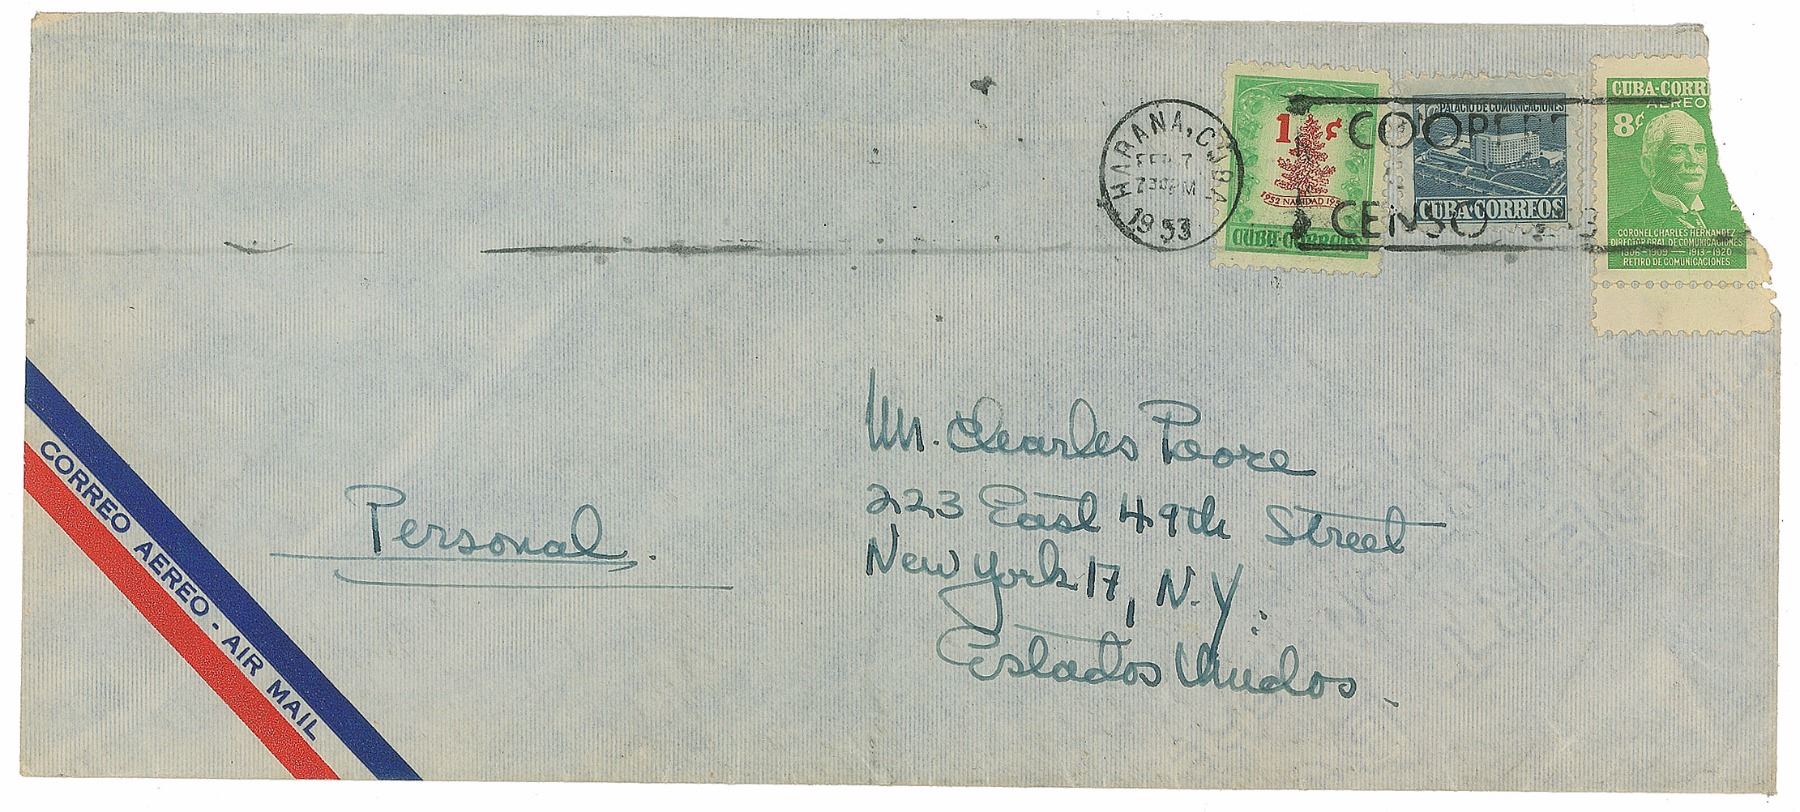 HABANA, CUBA
FEB 7
730PM
1953
COOPERE
CENSO
1 ¢
1952 NAVIDAD 195
CUBA-CORREOS
PALACIO DE COMUNICACIONES
CUBA CORREOS
CUBA-CORR
AEREO
8¢
CORONEL CHARLES HERNANDEZ
DIRECTOR GRAL DE COMUNICACIONES
1906-1909 — 1913-1920
RETIRO DE COMUNICACIONES
Mr. Charles Poore
223 East 49th Street
New York 17, N.Y.
Estados Unidos
Personal.
CORREO AEREO - AIR MAIL